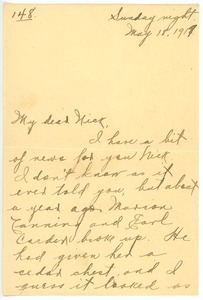 148
Sunday night
May 18, 1919
My dear Nick,
I have a bit
of news for you Nick
I don't know as it
ever told you, but about
a year ago Marion
Canning and Earl
Carden broke up. He
had given her a
cedar chest, and I
guess it looked as